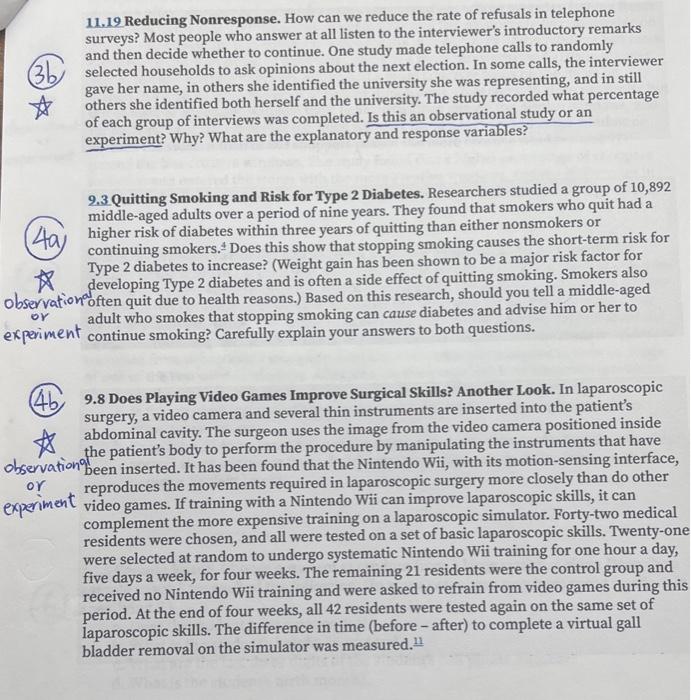 11.19 Reducing Nonresponse. How can we reduce the rate of refusals in telephone
surveys? Most people who answer at all listen to the interviewer's introductory remarks
and then decide whether to continue. One study made telephone calls to randomly
3b selected households to ask opinions about the next election. In some calls, the interviewer
gave her name, in others she identified the university she was representing, and in still
others she identified both herself and the university. The study recorded what percentage
of each group of interviews was completed. Is this an observational study or an
experiment? Why? What are the explanatory and response variables?
9.3 Quitting Smoking and Risk for Type 2 Diabetes. Researchers studied a group of 10,892
middle-aged adults over a period of nine years. They found that smokers who quit had a
4a higher risk of diabetes within three years of quitting than either nonsmokers or
continuing smokers.4 Does this show that stopping smoking causes the short-term risk for
Type 2 diabetes to increase? (Weight gain has been shown to be a major risk factor for
developing Type 2 diabetes and is often a side effect of quitting smoking. Smokers also
observational often quit due to health reasons.) Based on this research, should you tell a middle-aged
or adult who smokes that stopping smoking can cause diabetes and advise him or her to
experiment continue smoking? Carefully explain your answers to both questions.
4b 9.8 Does Playing Video Games Improve Surgical Skills? Another Look. In laparoscopic
surgery, a video camera and several thin instruments are inserted into the patient's
abdominal cavity. The surgeon uses the image from the video camera positioned inside
the patient's body to perform the procedure by manipulating the instruments that have
observational been inserted. It has been found that the Nintendo Wii, with its motion-sensing interface,
or reproduces the movements required in laparoscopic surgery more closely than do other
experiment video games. If training with a Nintendo Wii can improve laparoscopic skills, it can
complement the more expensive training on a laparoscopic simulator. Forty-two medical
residents were chosen, and all were tested on a set of basic laparoscopic skills. Twenty-one
were selected at random to undergo systematic Nintendo Wii training for one hour a day,
five days a week, for four weeks. The remaining 21 residents were the control group and
received no Nintendo Wii training and were asked to refrain from video games during this
period. At the end of four weeks, all 42 residents were tested again on the same set of
laparoscopic skills. The difference in time (before – after) to complete a virtual gall
bladder removal on the simulator was measured.11